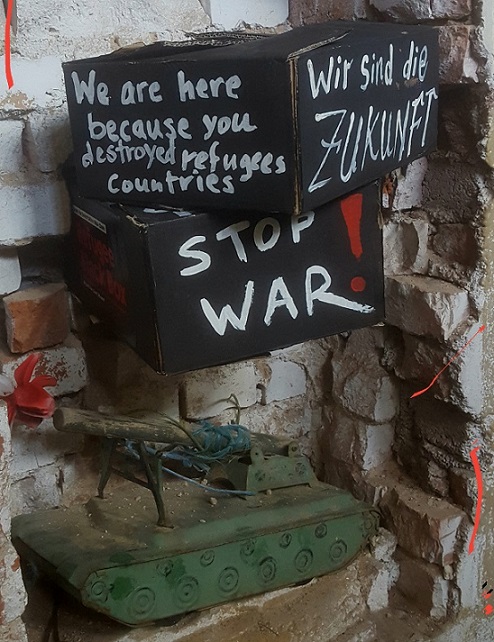 We are here
because you
destroyed refugees
countries
Wir sind die
ZUKUNFT
STOP
WAR!